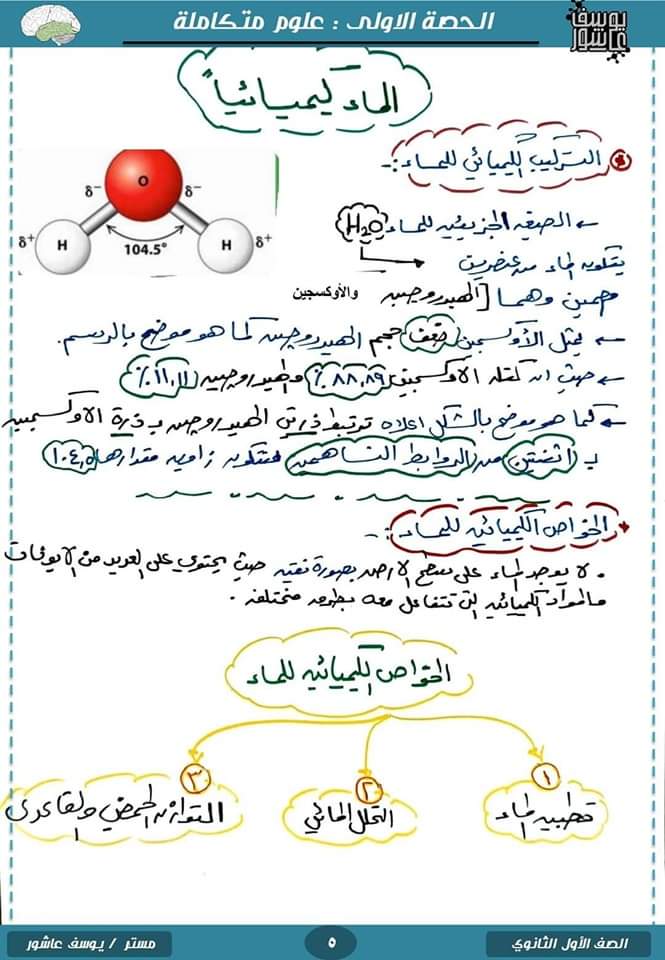 الحصة الاولى : علوم متكاملة
يوسف عاشور
الماء كيميائياً
التركيب الكيميائي للماء :-
← الصيغه الجزيئيه للماء H2O
يتكون الماء من عنصرين
مهمين وهما [الهيدروجين والأوكسجين
← يمثل الأوكسجين ضعف حجم الهيدروجين كما هو موضح بالرسم.
← حيث ان كتله الاوكسجين ٨٨,٨٩٪ والهيدروجين ١١,١١٪
← كما هو موضح بالشكل اعلاه ترتبط ذرتى الهيدروجين بذرة الاوكسجين
ب اثنتين من الروابط التساهميه فتتكون زاويه مقدارها ١٠٤,٥
O
δ− δ−
δ+ H H δ+
104.5°
* الخواص الكيميائيه للماء :-
. لا يوجد الماء على سطح الارض بصورة نقيه حيث يحتوي على العديد من الايونات
والمواد الكيميائيه التى تتفاعل معه بطرق مختلفه .
الخواص الكيميائيه للماء
١ ٢ ٣
قطبيه الماء
التحلل المائي
التوازن الحمضي والقاعدى
الصف الأول الثانوي
٥
مستر / يوسف عاشور